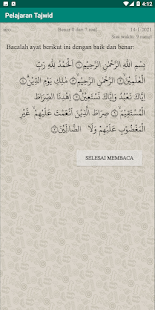 4:12
Pelajaran Tajwid
14-11-2021
Bacalah ayat berikut ini dengan baik dan benar:
بِسْمِ اللَّهِ الرَّحْمَنِ الرَّحِيمِ ۝ الْحَمْدُ لِلَّهِ رَبِّ
الْعَلَمِينَ ۝ الرَّحْمَنِ الرَّحِيمِ ۝ مَلِكِ يَوْمِ الدِّينِ ۝
إِيَّاكَ نَعْبُدُ وَإِيَّاكَ نَسْتَعِينُ ۝ اهْدِنَا الصِّرَاطَ
الْمُسْتَقِيمَ ۝ صِرَاطَ الَّذِينَ أَنْعَمْتَ عَلَيْهِمْ غَيْرِ
الْمَغْضُوبِ عَلَيْهِمْ وَلَا الضَّالِّينَ ۝
SELESAI MEMBACA